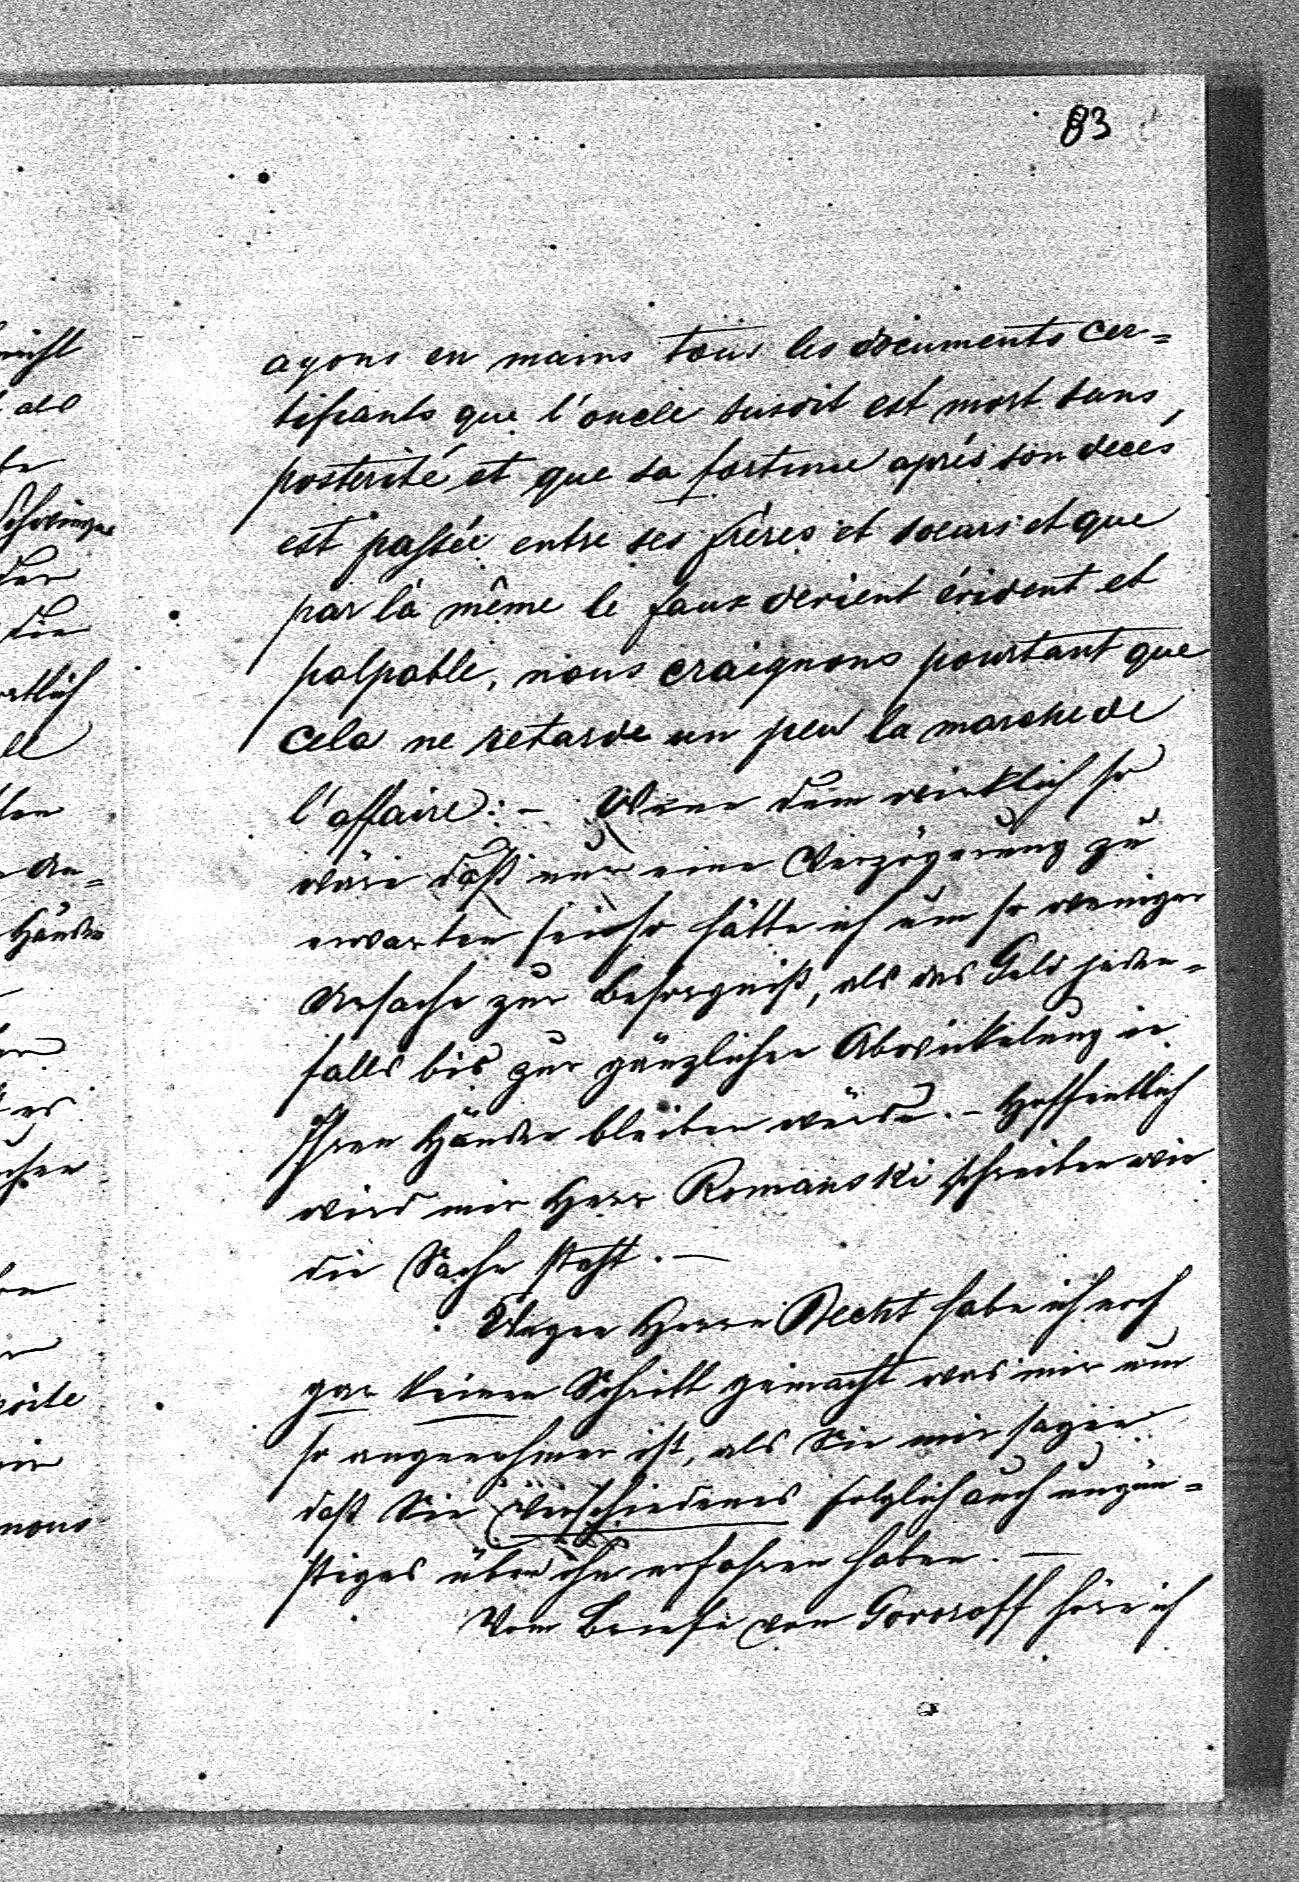 83
ayons en mains tous les documents cer=
tifiants que l'oncle susdit est mort sans
posterité, et que sa fortune après son decès
est passée entre ses frères et soeurs et que
par là même le faux devient évident et
palpable, nous craignons pourtant que
cela ne retarde un peu la marche de
l'affaire: – Wenn dem wirklich so
wäre daß nur eine Verzögerung zu
erwarten sei so hätte ich um so weniger
Ursache zur Besorgniß, als das Geld jeden=
falls bis zur gänzlichen Abwickelung in
Ihren Händen bleiben würde. – Hoffentlich
wird mir Herr Romanski schreiben wie
die Sache steht. –
Wegen Herrn Recht habe ich noch
gar keinen Schritt gemacht was mir um
so angenehmer ist, als Sie mir sagen
daß Sie verschiedenes folglich auch ungün=
stiges über ihn erfahren haben. –
Vom Briefe von Gororoff höre ich